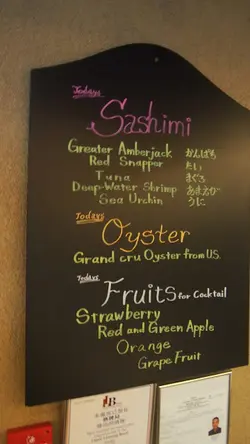 Todays
Sashimi
Greater Amberjack かんぱち
Red Snapper たい
Tuna まぐろ
Deep-Water Shrimp あまえび
Sea Urchin うに
Todays
Oyster
Grand cru Oyster from US.
Todays
Fruits for Cocktail
Strawberry
Red and Green Apple
Orange
Grape Fruit